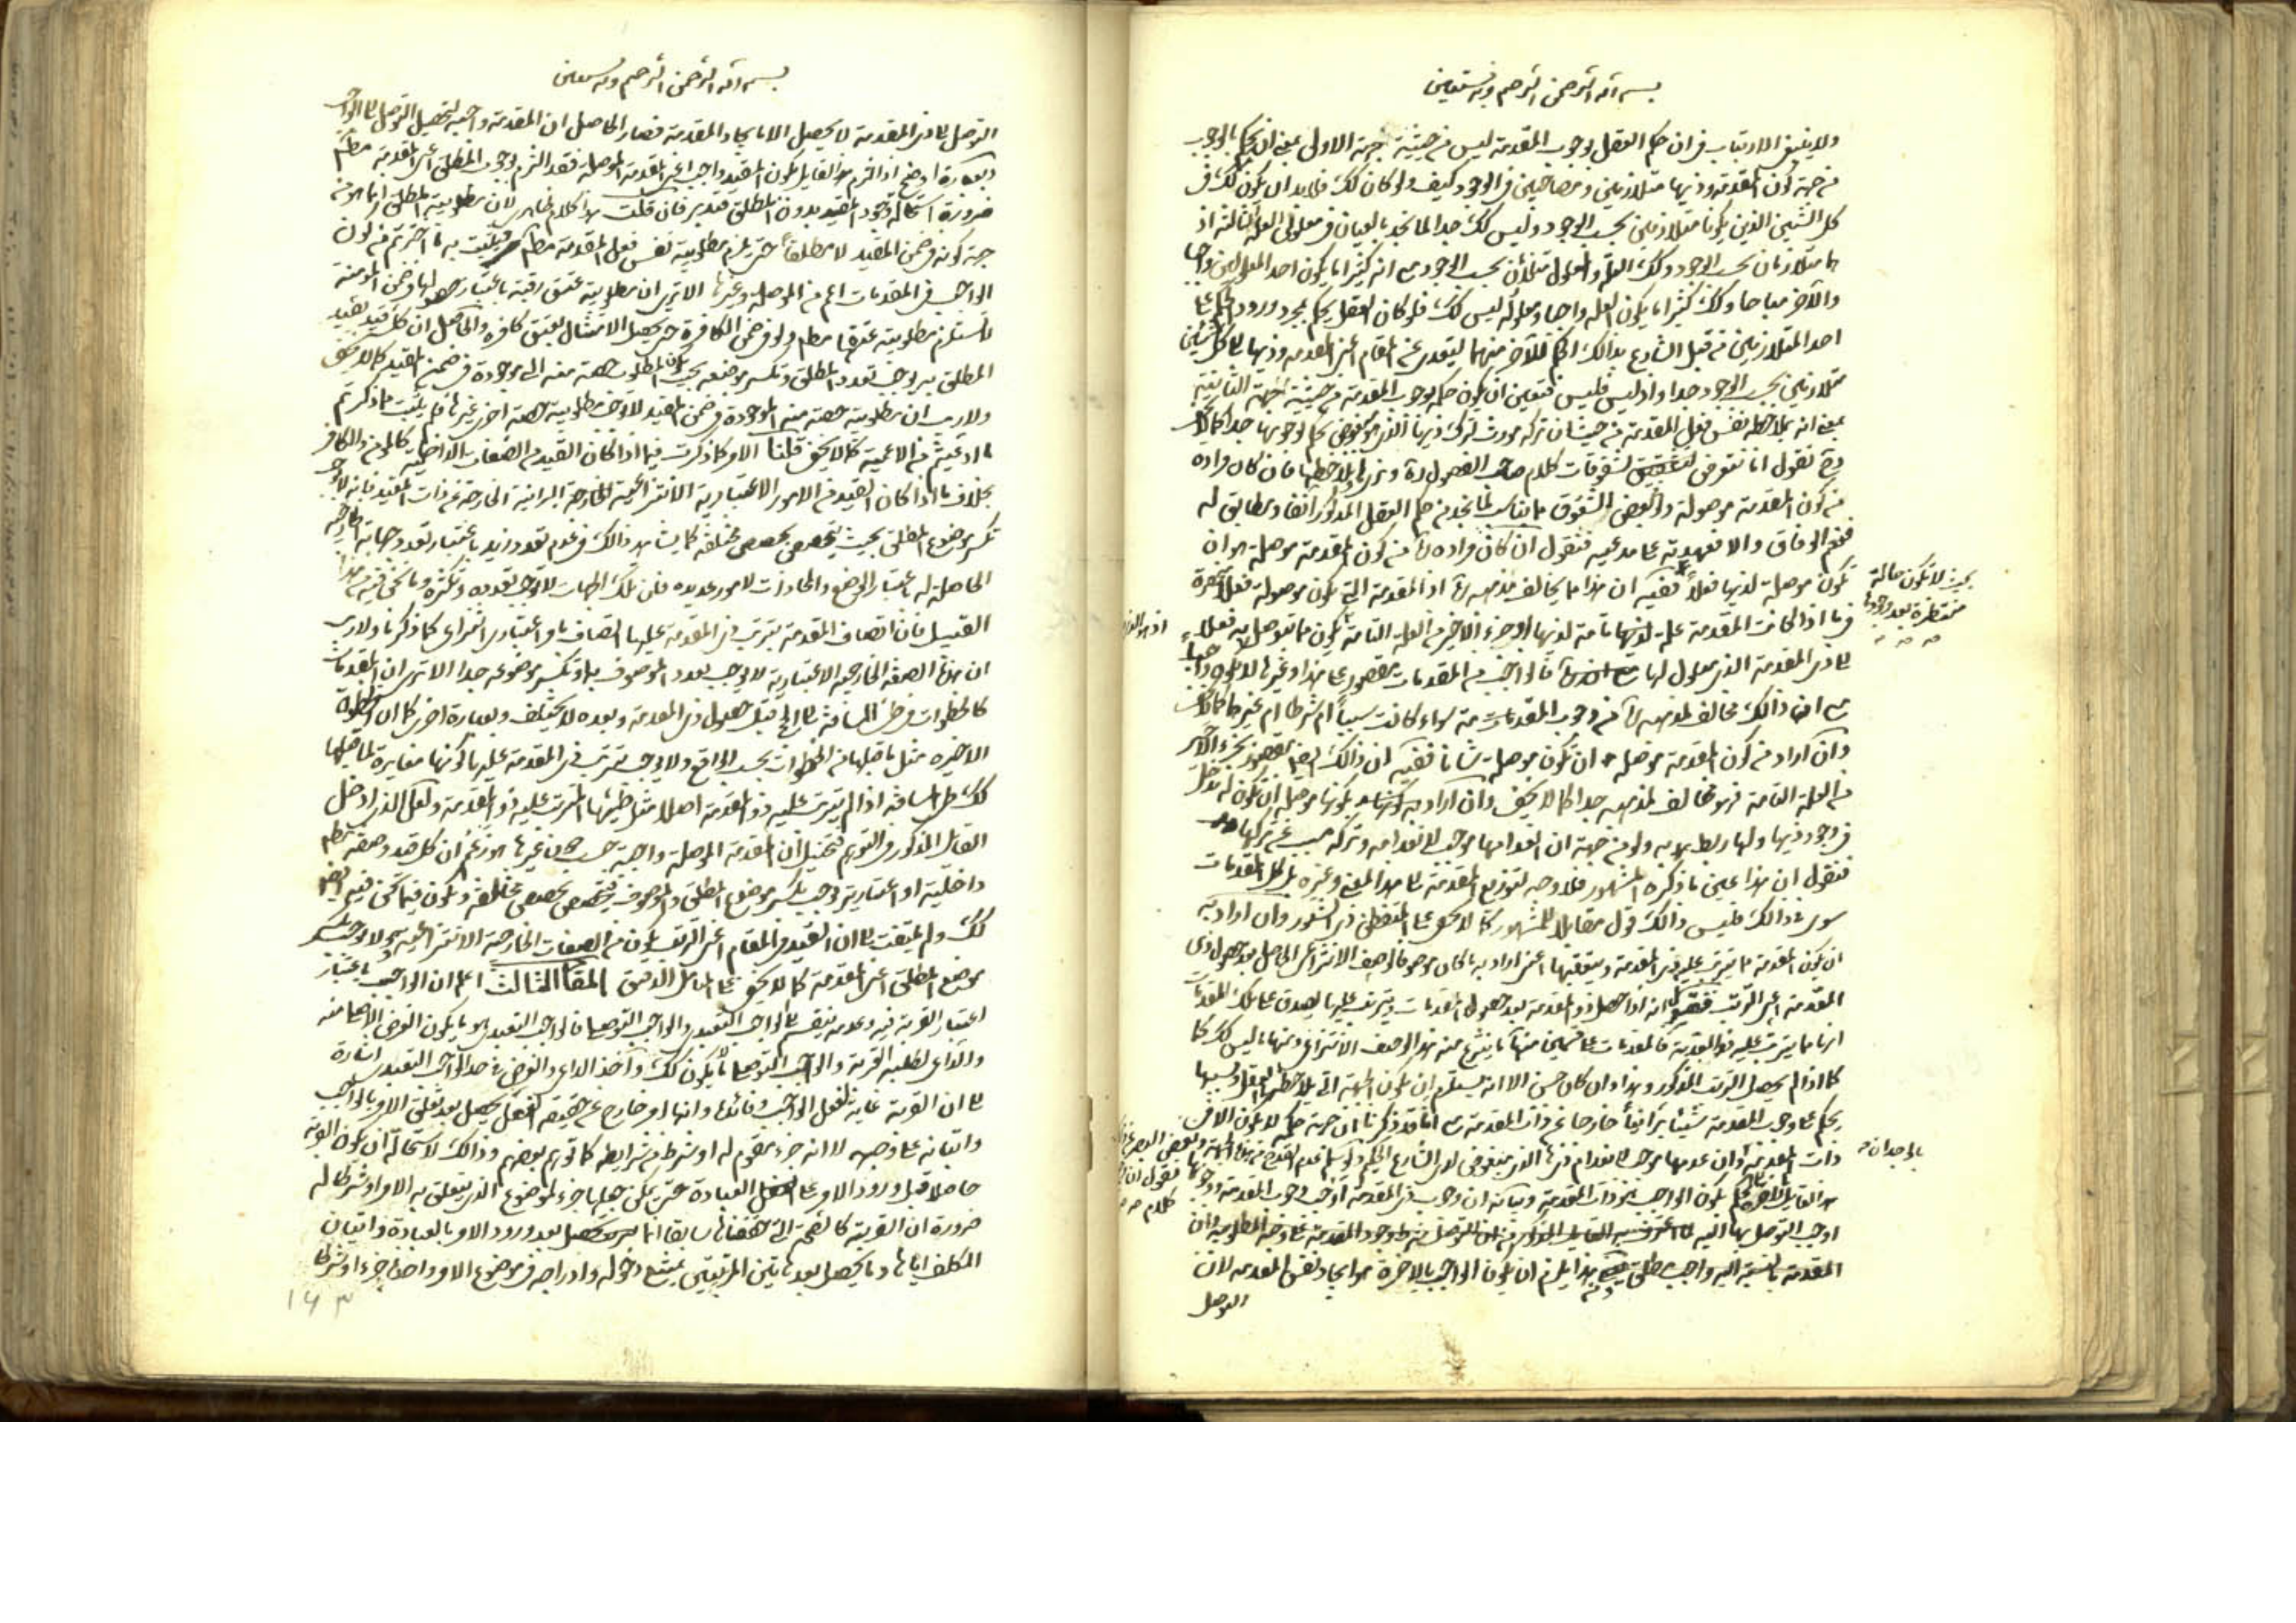 بسم الله الرحمن الرحيم وبه نستعين
ولا ينبغي الارتياب في ان حكم العقل بوجوب المقدمة ليس من حيثية جهة الاولى بمعنى ان يحكم بالوجوب
من جهة كون المقدمة وذيها متلازمين ومصاحبين في الوجود كيف ولو كان كك فلا بد ان يكون كك في
كل الشيئين الذين يكونا متلازمين بحسب الوجود وليس كك جدا لما نجد بالعيان في معلولى العلة الثالثة اذ
هما متلازمان بحسب الوجود وكك العلة والمعلول متلازمان بحسب الوجود مع انه كثيرا ما يكون احد المعلولين واجبا
والآخر مباحا وكك كثيرا ما يكون العلة واجبا ومعلوله ليس كك فلو كان العقل يحكم بمجرد ورود الحكم على
احد المتلازمين من قبل الشارع بذالك الحكم للآخر منهما ليتعدى عن المقام اعنى المقدمة وذيها الى كل شيئين
متلازمين بحسب الوجود جدا واذ ليس فليس فتعين ان يكون حكمه بوجوب المقدمة من حيثية الجهة الثانية
بمعنى انه بملاحظة نفس فعل المقدمة من حيث ان تركه مورث لترك ذيها الذى هو مبغوض يحكم بوجوبها جدا كما لا يخفى
وح نقول انا نتعرض لشقوقات كلام صاحب الفصول ره ونرى ونلاحظها فان كان مراده
من كون المقدمة موصولة ولو بعض الشقوق مما يناسب لما نجد من حكم العقل المذكور آنفا ويطابق له
فنعم الوفاق والا فعهدته على مدعيه فنقول ان كان مراده ره من كون المقدمة موصلة هو ان
تكون موصلة لذيها فعلا ففيه ان هذا مما يخالف مذهبه ره اذ المقدمة التى تكون موصولة فعلا منحصرة
بحيث لا تكون حالة
منتظرة بعد وجودها
فيما اذا كانت المقدمة علة لذيها تامة لذيها او جزء الاخير من العلة التامة
الى ذى المقدمة الذى معلول لها فالواجب من المقدمات مقصور على هذا وغيرها لا يكون واجبا
مع ان ذالك مخالف لمذهبه ره من وجوب المقدمات سواء كانت سببا ام شرطا ام غيرهما كما لا يخفى
وان اراد من كون المقدمة موصلة ان تكون موصلة شانا ففيه ان ذالك ايضا مقصور بجزء الاخير
من العلة التامة فهو مخالف لمذهبه جدا كما لا يخفى وان اراد بكونها موصلة ان تكون له مدخل
في وجود ذيها ولها ربط بها به ولو من جهة ان انعدامها موجب لانعدامه وتركه مسبب عن تركها
فنقول ان هذا عين ما ذكره المشهور فلا وجه لتوزيع المقدمة الى هذا المعنى وغيره بل كل المقدمات
سواء في ذالك فليس ذالك قول مقابلا للمشهور كما لا يخفى على المتفطن ذى الشعور وان اراد به
ان يكون المقدمة مما يترتب عليه ذى المقدمة ويتعقبها اعنى اراد به ما كان موصوفا بوصف الانتزاعى الحاصل بعد حصول ذى
المقدمة اعنى الترتب فنقول انه اذا حصل ذو المقدمة بعد حصول المقدمات ويترتب عليها يصدق على تلك المقدمات
انها مما يترتب عليه ذو المقدمة فالمقدمات على قسمين منها ما ينتزع منه هذا الوصف الانتزاعى ومنها ما ليس كك كما
كما اذا لم يحصل الترتب المذكور وهذا وان كان حسن الا انه يستلزم ان يكون الجهة التى يلاحظها العقل وبسببها
يحكم على وجوب المقدمة شيئا برانيا خارجا عن ذات المقدمة مع انا قد ذكرنا ان جهة حكمه لا يكون الا في
بالوجدان
ذات المقدمة وان عدمها موجب لانعدام ذيها الذى مبغوض لدى الشارع الحكيم
هذا القايل يكون الواجب هو ذات المقدمة وبيانه ان وجوب ذى المقدمة اوجب وجوب المقدمة
اوجب التوصل بها اليه
المقدمة بالنسبة اليه واجب مطلق يلزم ان يكون الواجب بالاخرة هو ايجاد نفس المقدمة لان
التوصل
بسم الله الرحمن الرحيم وبه نستعين
التوصل الى ذى المقدمة لا يحصل الا بايجاد المقدمة فصار الحاصل ان المقدمة واجبة لتحصيل التوصل الى الواجب
وبعبارة اوضح اذ التزم هذا القايل بكون المقيد واجب اعنى المقدمة الموصلة فقد التزم بوجوب المطلق اعنى المقدمة مطلقا
ضرورة استحالة وجود المقيد بدون المطلق فتدبر فان قلت هذا كلام ظاهرى لان مطلوبية المطلق انما هو من
جهة كونه في ضمن المقيد لا مطلقا حتى يلزم مطلوبية نفس فعل المقدمة مطلقا فيثبت به ما اخترتم من كون
الواجب في المقدمات اعم من الموصلة وغيرها الا ترى ان مطلوبية عتق رقبة باعتبار حصولها في ضمن المؤمنة
لا يستلزم مطلوبية عتقها مطلقا ولو في ضمن الكافرة حتى يحصل الامتثال بعتق كافرة والحاصل ان كل قيد يقيد
المطلق به يوجب تعدد المطلق وتكسر موضوعه بحيث يكون المطلوب حصة منه التى موجودة في ضمن المقيد كما لا يخفى
ولا ريب ان مطلوبية حصة منه الموجودة في ضمن المقيد لا يوجب مطلوبية حصة اخرى غيرها فلم يثبت مما ذكرتم
ما ادعيتم من الاعمية كما لا يخفى قلنا الامر كما ذكرت فيما اذا كان القيد من الصفات الداخلية كالمؤمن والكافر
بخلاف ما اذا كان القيد من الامور الاعتبارية الانتزاعية الخارجة البرانية الخارجة عن ذات المقيد فانه لا يوجب
تكسر موضوع المطلق بحيث يتحصص بحصص مختلفة كما يشاهد ذالك في عدم تعدد زيد باعتبار تعدد جهاته الخارجية
الحاصلة له باعتبار الوضع والمحاذات لامور عديدة فان تلك الجهات لا توجب تعدده وتكثره وما نحن فيه من هذا
القبيل فان اتصاف المقدمة بترتب ذى المقدمة عليها اتصاف بامر اعتبارى انتزاعى كما ذكرنا ولا ريب
ان هذه الصفة الخارجية الاعتبارية لا يوجب تعدد الموصوف بها وتكسر موضوعه جدا الا ترى ان المقدمات
كالخطوات في طى المسافة الى الحج قبل حصول ذى المقدمة وبعده لا يختلف وبعبارة اخرى كما ان الخطوة
الاخيرة مثل ما قبلها من الخطوات بحسب الواقع ولا يوجب ترتب ذى المقدمة عليها كونها مغايرة لما قبلها
كك طى المسافة اذا لم يترتب عليه ذو المقدمة اصلا مثل طيها المترتب عليه ذو المقدمة ولعل الذى ادخل
القايل المذكور في التوهم فتخيل ان المقدمة الموصلة واجبة حسب دون غيرها هو زعم ان كل قيد وصفة مطلقا
داخلية او اعتبارية يوجب تكسر موضوع المطلق والموصوف فيتحصص بحصص مختلفة ويكون فيما نحن فيه ايضا
كك ولم يلتفت الى ان القيد في المقام اعنى الترتب يكون من الصفات الخارجية الانتزاعية وهو لا يوجب تكسر
موضوع المطلق اعنى المقدمة كما لا يخفى على المتامل الدقيق المقام الثالث اعلم ان الواجب باعتبار
اعتبار القربة فيه وعدمه ينقسم الى الواجب التعبدى والواجب التوصلى فالواجب التعبدى هو ما يكون الغرض الاصلى منه
والداعى لطلبه القربة والواجب التوصلى ما لا يكون كك وآخذ الداعى والغرض في حد الواجب التعبدى اشارة
الى ان القربة غاية لفعل الواجب وفائدة وانها امر خارج عن حقيقة الفعل يحصل بعد تعلق الامر بالواجب
واتيانه على وجهه لا انه جزء مقوم له او شرط من شرايطه كما توهم بعضهم وذالك لاستحالة ان يكون القربة
حاصلا قبل ورود الامر على العبادة حتى يمكن جعلها جزء لموضوع الذى يتعلق به الامر او شرطا له
ضرورة ان القربة كالصحة التى حققناها سابقا انما يحصل بعد ورود الامر بالعبادة واتيان
المكلف اياها وما يحصل بعد هاتين المرتبتين يمتنع دخوله وادراجه في موضوع الامر واخذه جزء او شرطا
۱۶۳